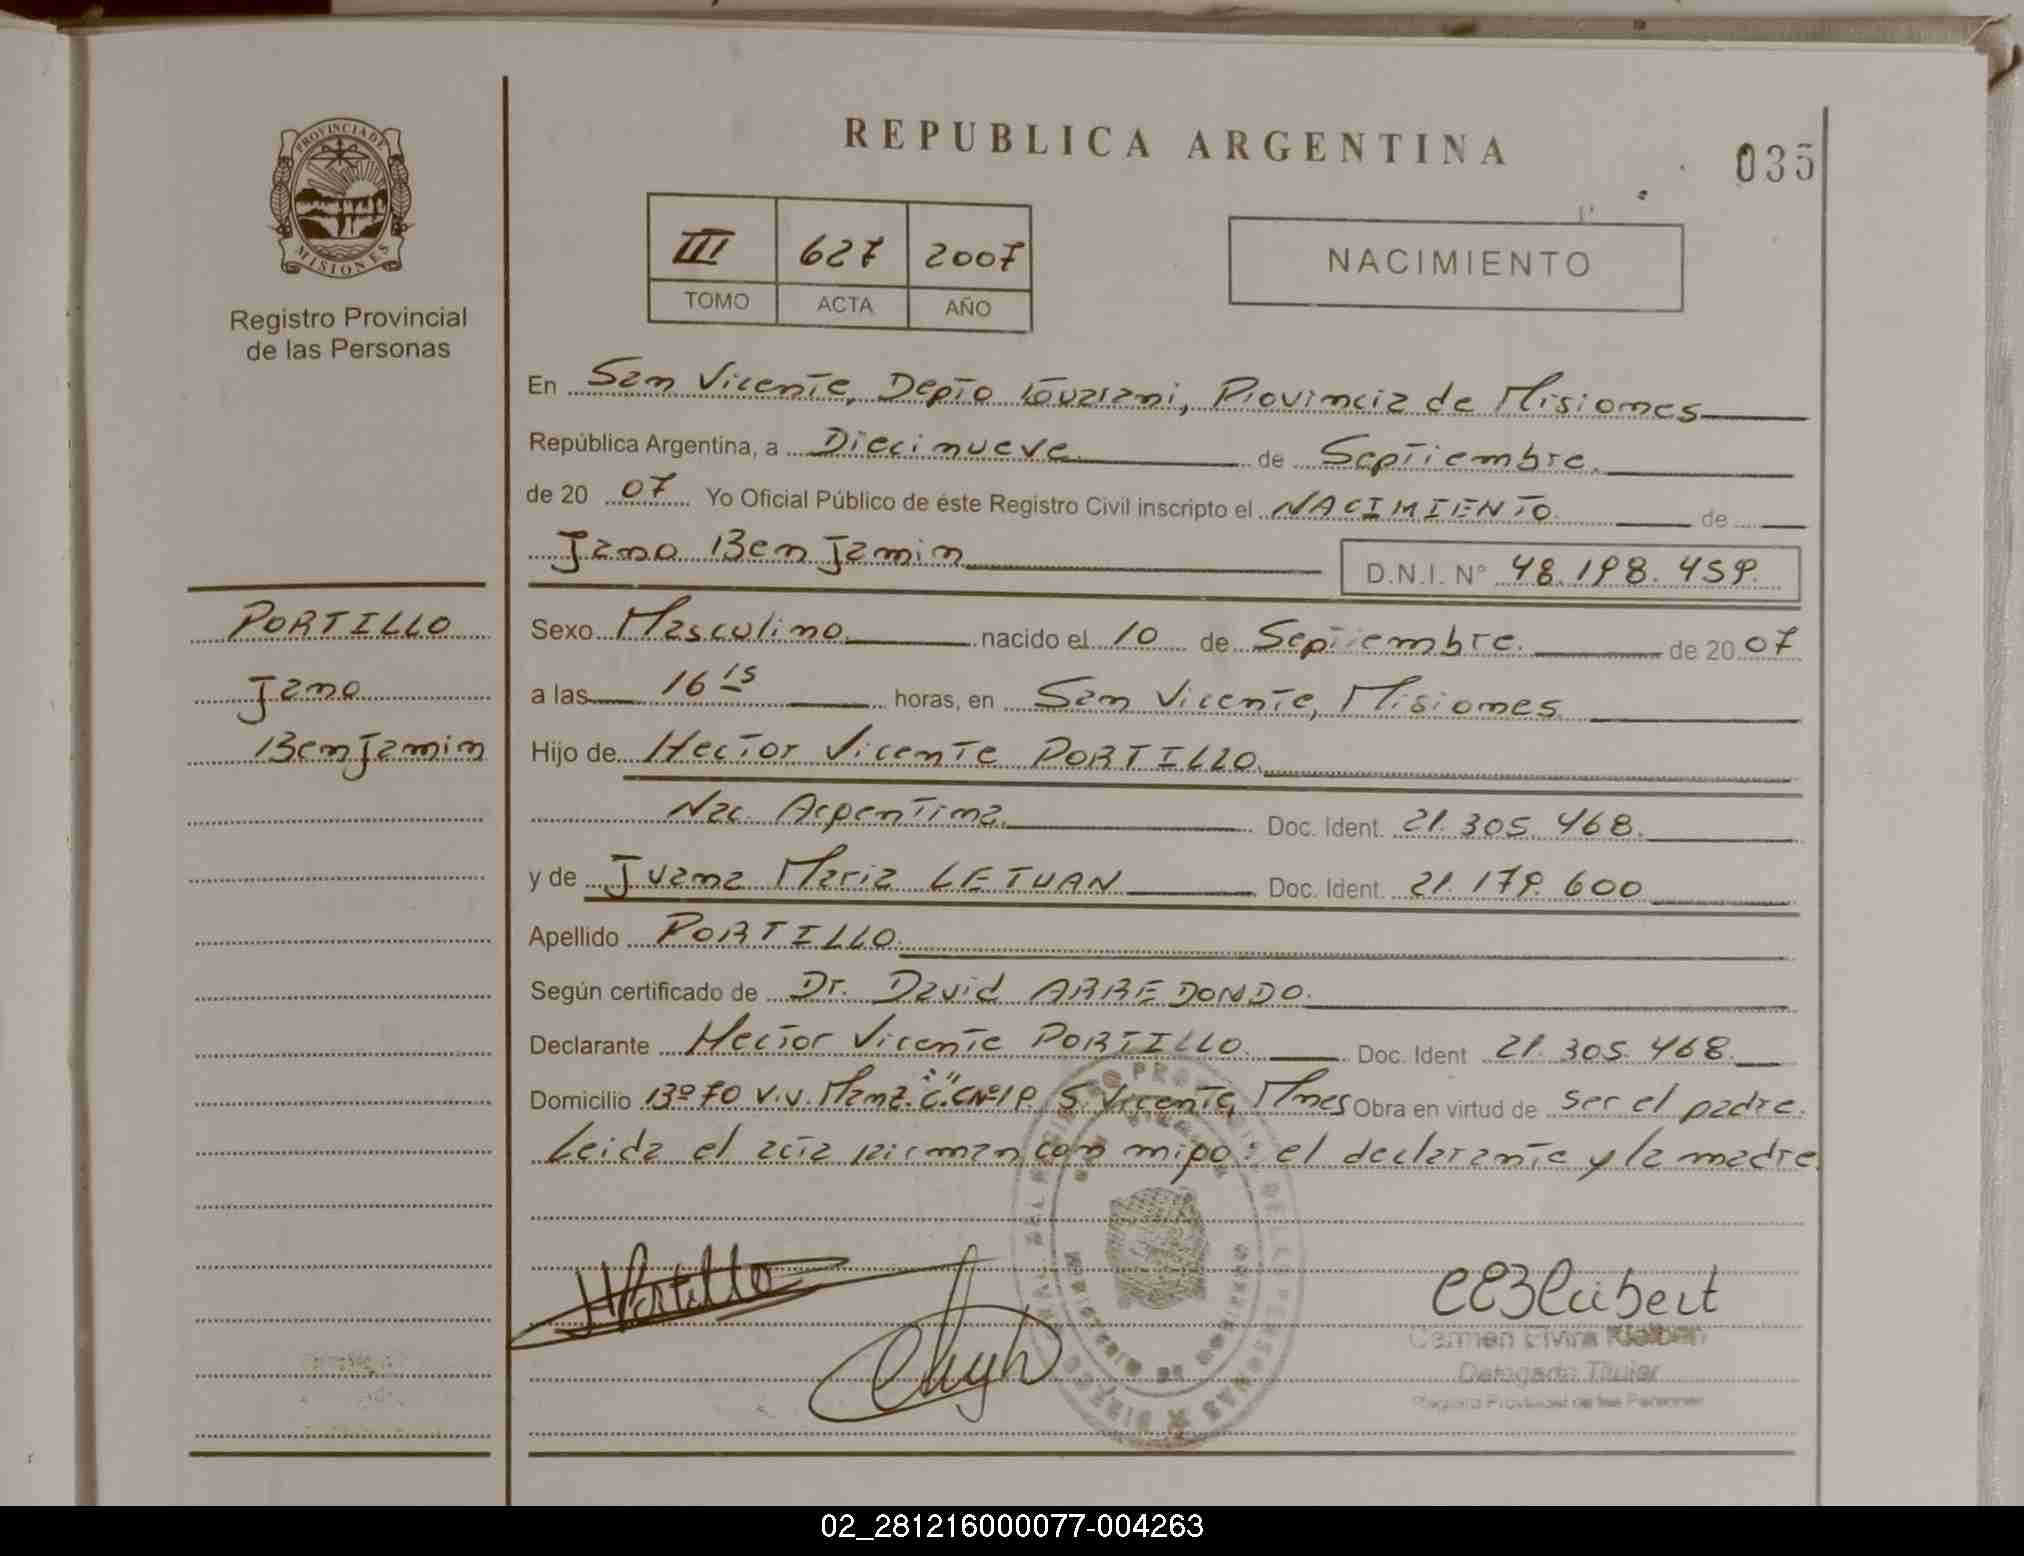 REPUBLICA ARGENTINA
035
PROVINCIA DE
MISIONES
Registro Provincial
de las Personas
III 627 2007
TOMO ACTA AÑO
NACIMIENTO
En San Vicente, Depto Guarani, Provincia de Misiones
República Argentina, a Diecinueve de Septiembre
de 20 07 Yo Oficial Público de éste Registro Civil inscripto el NACIMIENTO de
Jano Benjamin
D.N.I. N° 48.198.459.
PORTILLO
Jano
Benjamin
Sexo Masculino nacido el 10 de Septiembre. de 20 07
a las 16 15 horas, en San Vicente, Misiones
Hijo de Hector Vicente PORTILLO
Nac. Argentina Doc. Ident. 21.305.468.
y de Juana Maria LETUAN Doc. Ident. 21.179.600
Apellido PORTILLO
Según certificado de Dr. David ARREDONDO.
Declarante Hector Vicente PORTILLO Doc. Ident 21.305.468.
Domicilio 13º 70 V.V. Manz. "C" C Nº 19 S. Vicente, Mnes Obra en virtud de ser el padre.
Leida el acta firman con migo: el declarante y la madre.
HPortillo
Carmen Elvira
Delegada Titular
Registro Provincial de las Personas
02_281216000077-004263